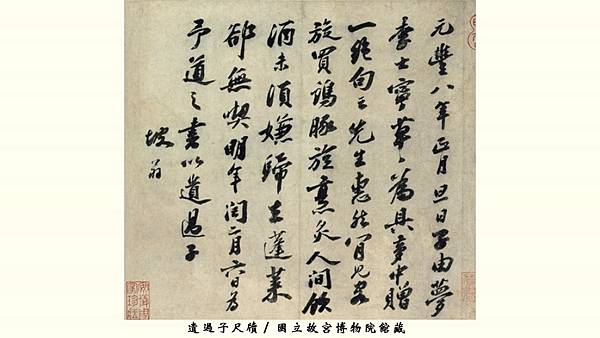 元豐八年正月旦日子由夢
李士寧草〻為具夢中贈
一絕句云先生惠然肯見客
旋買鷄豚旋烹炙人間飲
酒未須嫌歸去蓬萊
卻無喫明年閏二月六日為
予道之書以遺過子
坡翁
遺過子尺牘 / 國立故宮博物院館藏